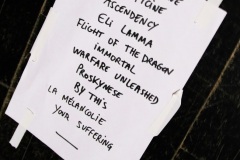 ASCENDENCY
ELI LAMMA
FLIGHT OF THE DRAGON
IMMORTAL
WARFARE UNLEASHED
PROSKYNESE
BY THIS
LA MELANCOLIE
YOUR SUFFERING